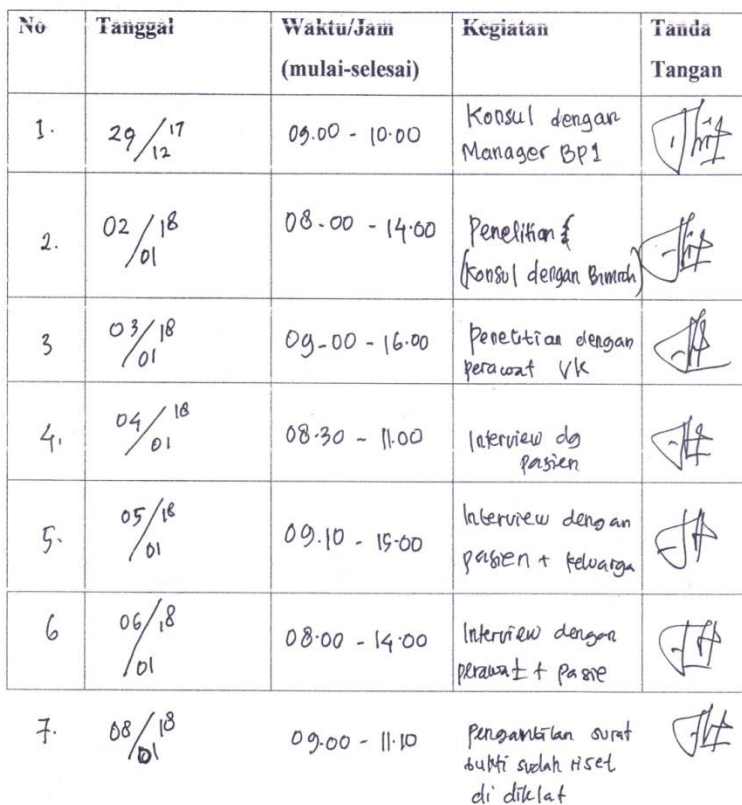 No Tanggal Waktu/Jam Kegiatan Tanda
(mulai-selesai) Tangan
1. 29/12 17 09.00 - 10.00 Konsul dengan
Manager BP1
2. 02/01 18 08.00 - 14.00 Penelitian &
(Konsul dengan
3 03/01 18 09.00 - 16.00 Penelitian dengan
perawat VK
4. 04/01 18 08.30 - 11.00 Interview dg
pasien
5. 05/01 18 09.10 - 15.00 Interview dengan
pasien + keluarga
6 06/01 18 08.00 - 14.00 Interview dengan
perawat + pasie
7. 08/01 18 09.00 - 11.10 pengambilan surat
bukti sudah riset
di diklat